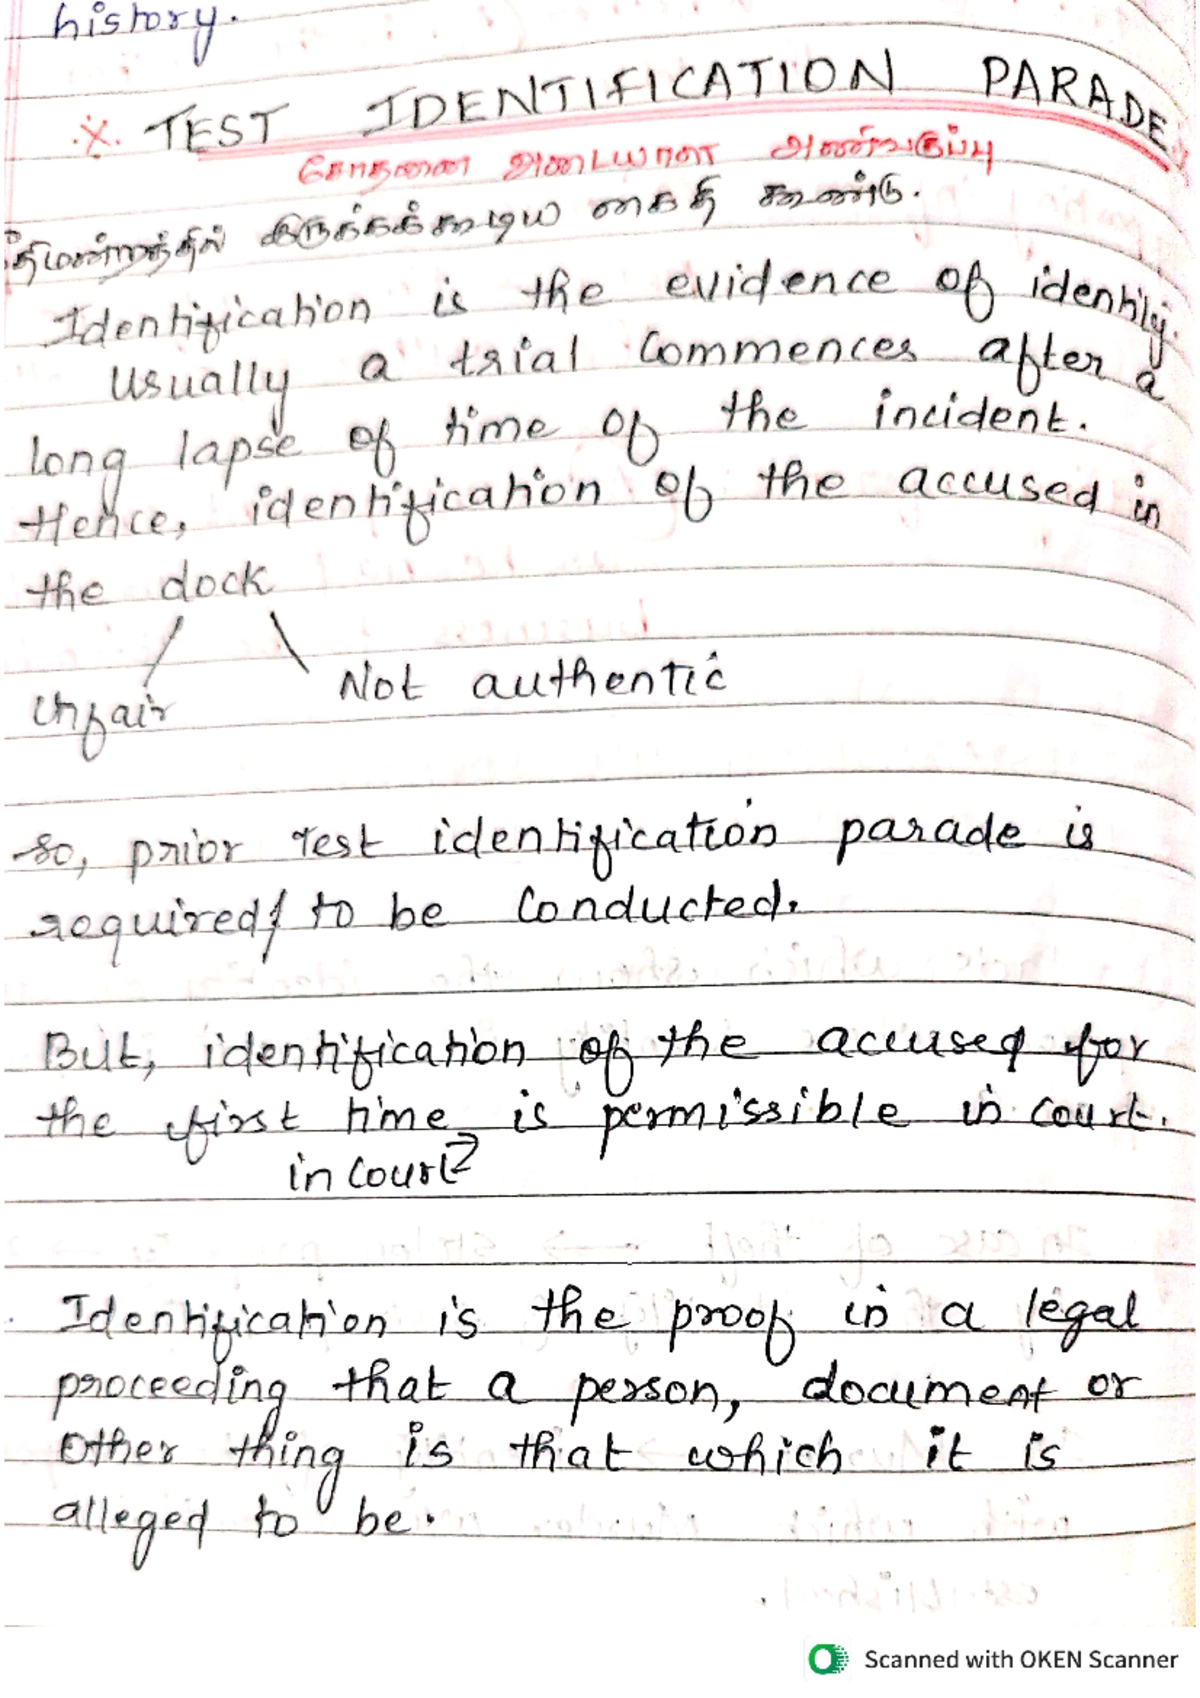 history.
※. TEST IDENTIFICATION PARADE
சோதனை அடையாள அணிவகுப்பு
நீதிமன்றத்தில் இருக்கக்கூடிய கைதி கூண்டு.
Identification is the evidence of identity.
Usually a trial commences after a
long lapse of time of the incident.
Hence, identification of the accused in
the dock
Unfair
Not authentic
So, prior Test identification parade is
required to be conducted.
But, identification of the accused for
the first time is permissible in court.
in court?
Identification is the proof in a legal
proceeding that a person, document or
other thing is that which it is
alleged to be.
Scanned with OKEN Scanner